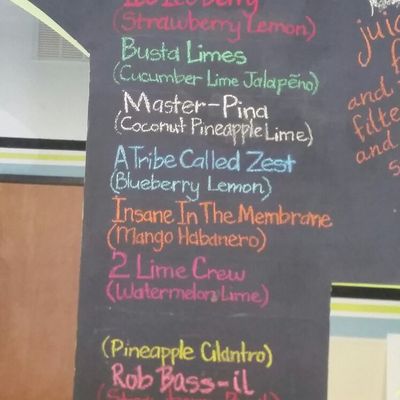 (Strawberry Lemon)
Busta Limes
(Cucumber Lime Jalapeño)
Master-Pina
(Coconut Pineapple Lime)
A Tribe Called Zest
(Blueberry Lemon)
Insane In The Membrane
(Mango Habanero)
2 Lime Crew
(Watermelon Lime)
(Pineapple Cilantro)
Rob Bass-il
juic
and
filte
and